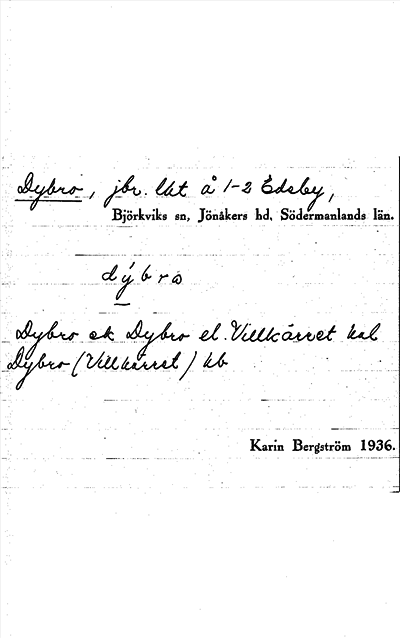 Dybro, jbr. lkt å 1-2 Edeby,
Björkviks sn, Jönåkers hd, Södermanlands län.
dýbrω
Dybro ek Dybro el. Villkärret kal
Dybro (Villkärret) kb
Karin Bergström 1936.